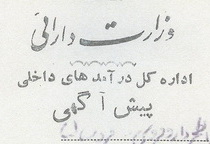 وزارت دارائی
اداره کل درآمدهای داخلی
پیش آگهی